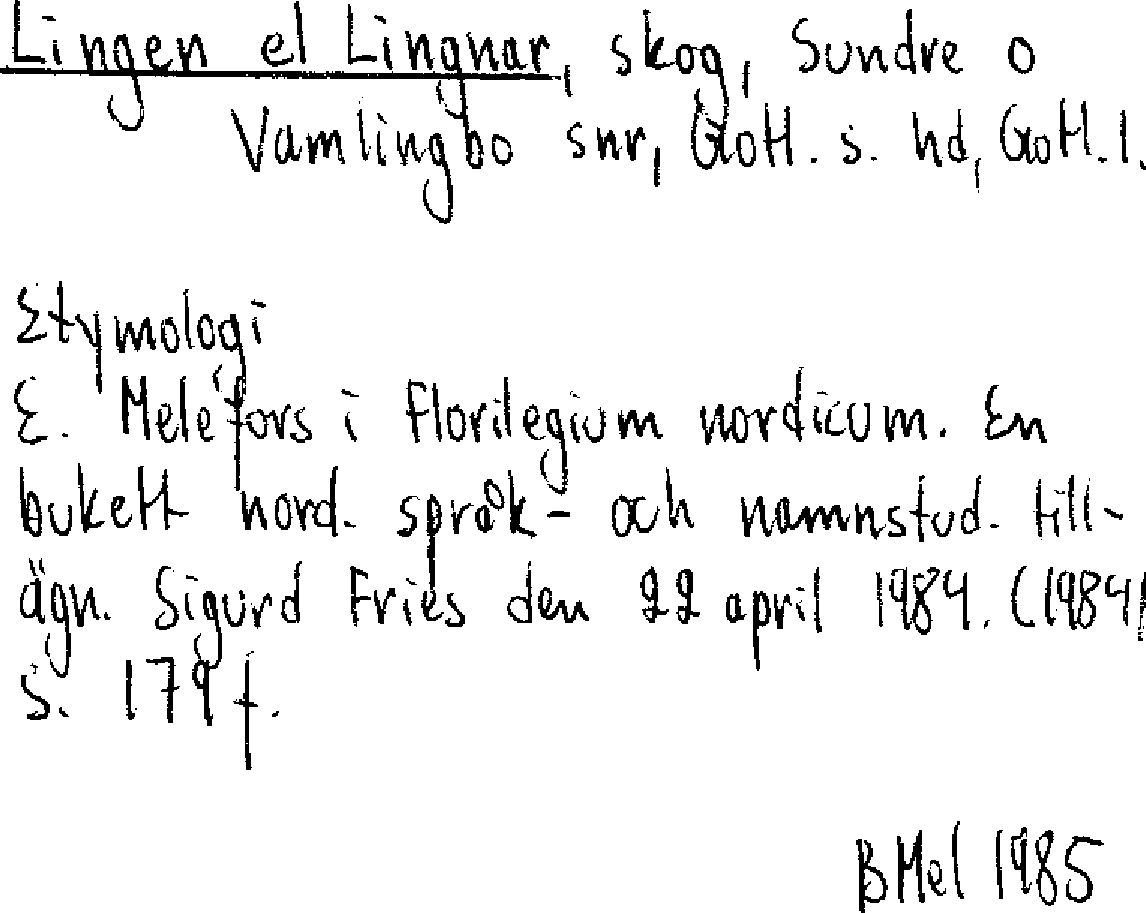 Lingen el Lingnar, skog, Sundre o
Vamlingbo snr, Gotl. s. hd, Gotl. l.
Etymologi
E. Melefors i Florilegium nordicum. En
bukett nord. språk- och namnstud. till-
ägn. Sigurd Fries den 22 april 1984. (1984)
s. 179 f.
BMel 1985